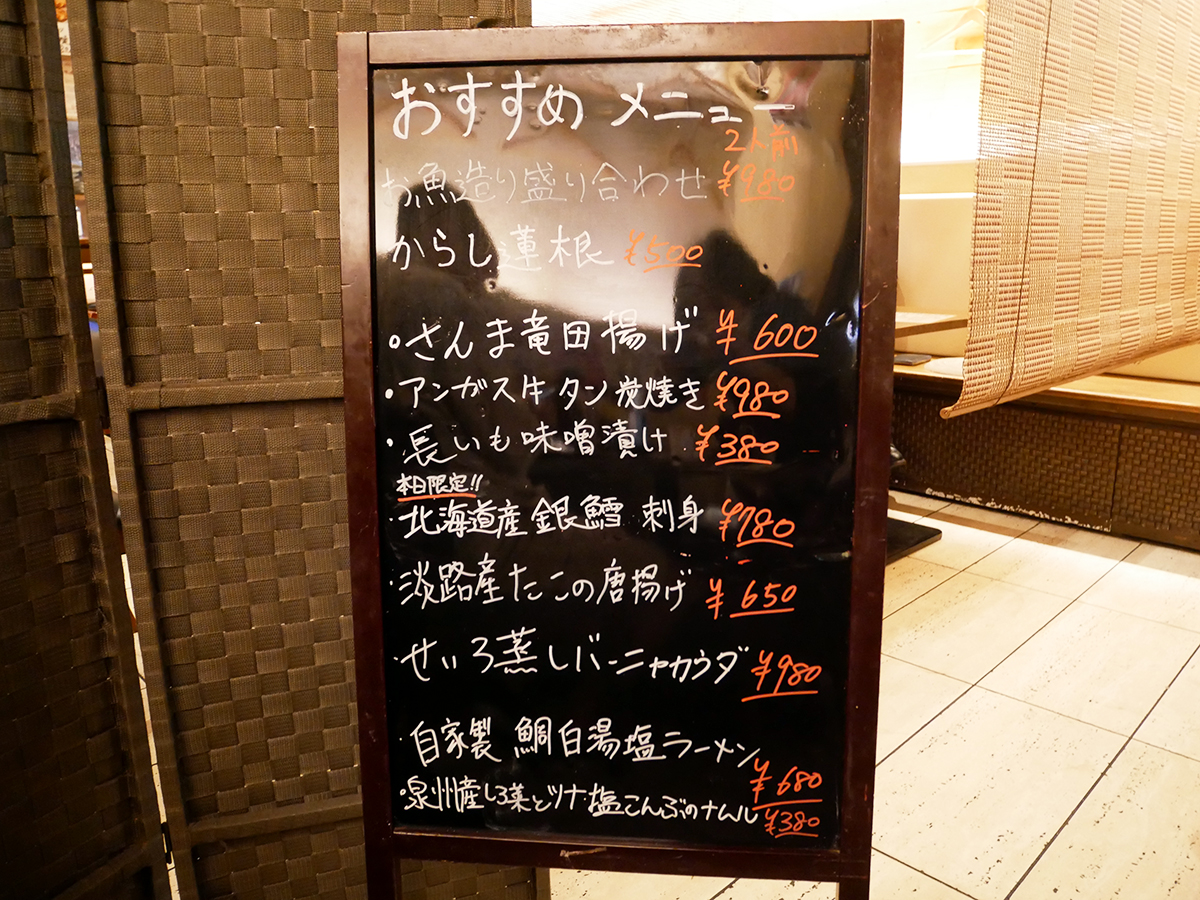 おすすめ メニュー
2人前
お魚造り盛り合わせ ¥980
からし蓮根 ¥500
・さんま竜田揚げ ¥600
・アンガス牛タン炭焼き ¥980
・長いも味噌漬け ¥380
本日限定!!
・北海道産銀鱈 刺身 ¥780
・淡路産たこの唐揚げ ¥650
・せいろ蒸しバーニャカウダ ¥980
・自家製 鯛白湯塩ラーメン ¥680
・泉州産しろ菜とツナ塩こんぶのナムル ¥380